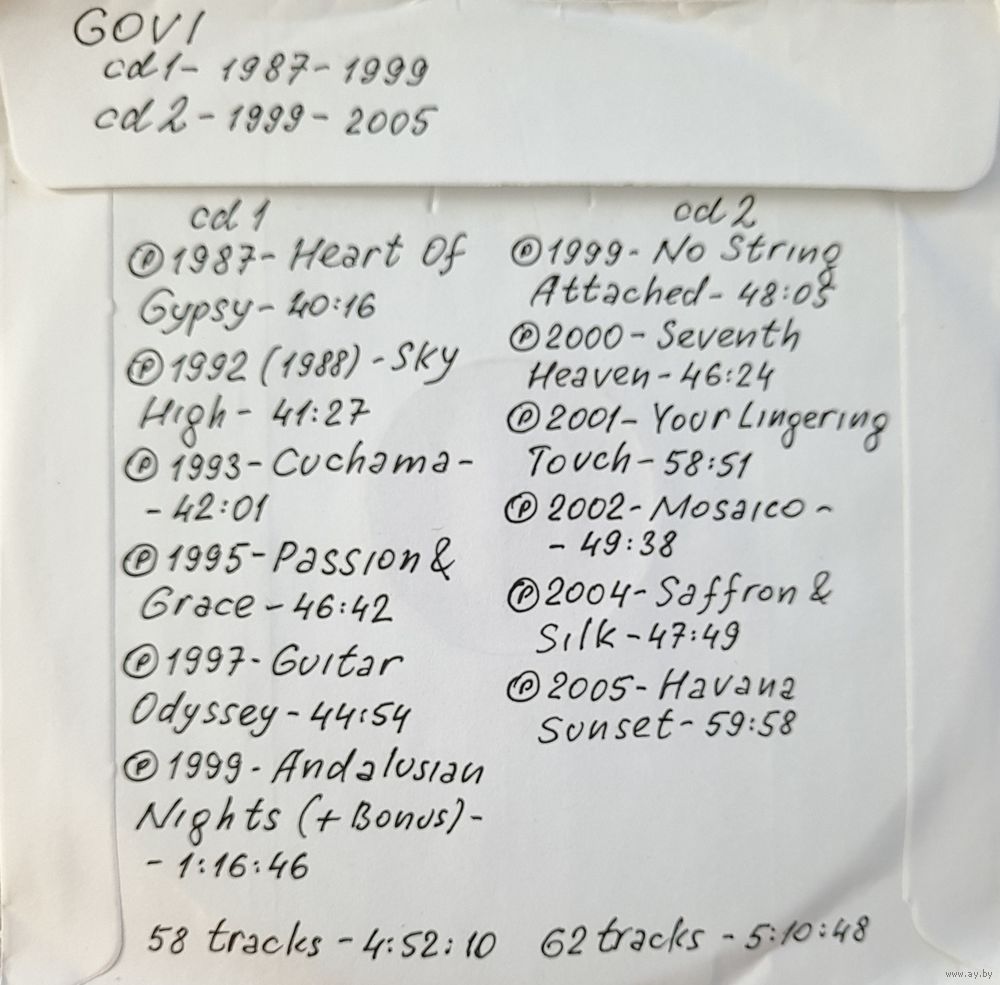 GOVI
cd1- 1987-1999
cd2-1999-2005
cd 1
℗1987- Heart Of
Gypsy- 40:16
℗1992 (1988) -Sky
High- 41:27
℗ 1993-Cuchama-
- 42:01
℗ 1995-Passion &
Grace - 46:42
℗1997-Guitar
Odyssey-44:54
℗ 1999-Andalusian
Nights (+ Bonus)-
- 1:16:46
58 tracks - 4:52:10
cd 2
℗1999- No String
Attached- 48:05
℗2000-Seventh
Heaven-46:24
℗2001- Your Lingering
Touch-58:51
℗ 2002-Mosaico -
- 49:38
℗2004-Saffron &
Silk-47:49
℗2005-Havana
Sunset-59:58
62 tracks - 5:10:48
www.ay.by